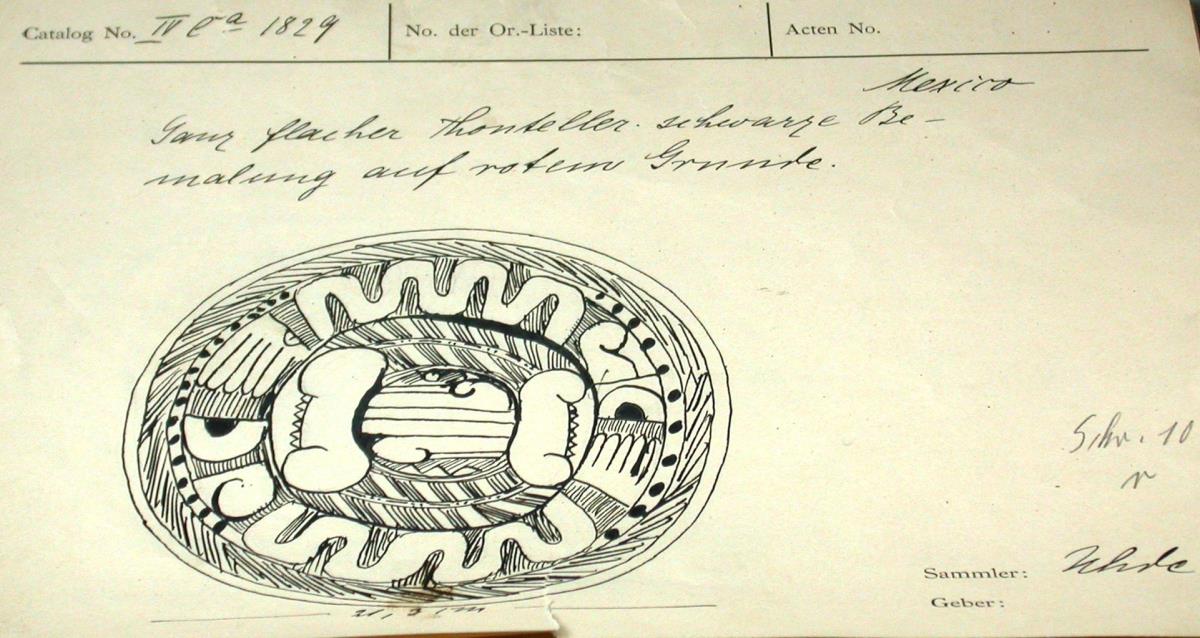 Catalog No. IV Ca 1829 No. der Or.-Liste: Acten No.
Mexico
Ganz flacher Thonteller. schwarze Be-
malung auf rotem Grunde.
Schr. 10
Sammler: Uhde
Geber:
cm